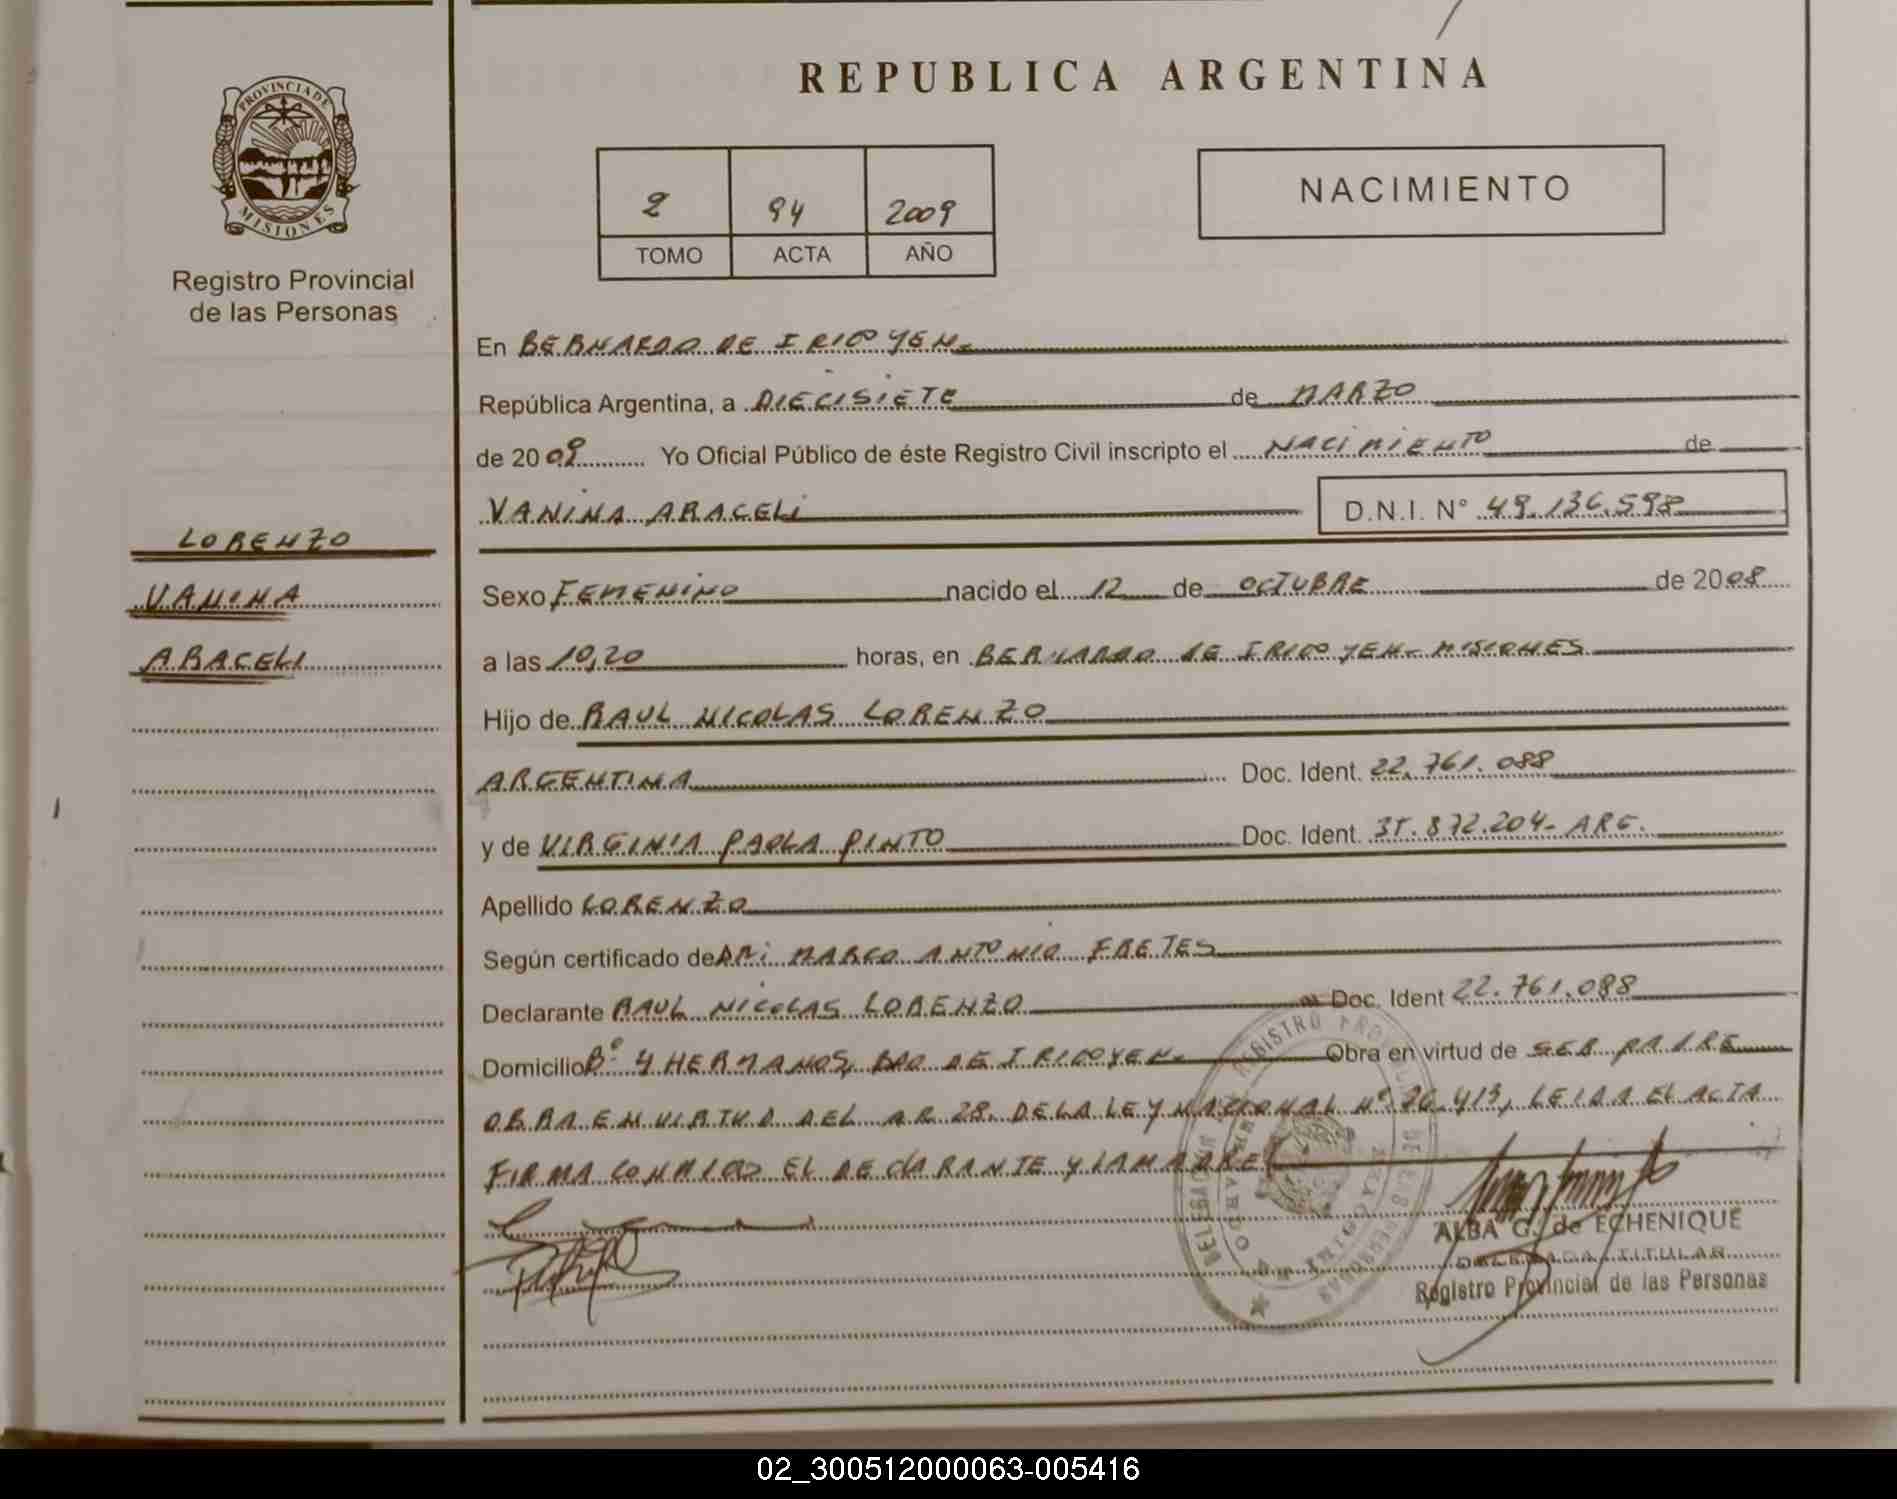 REPUBLICA ARGENTINA
PROVINCIA DE
MISIONES
Registro Provincial
de las Personas
2 94 2009
TOMO ACTA AÑO
NACIMIENTO
En BERNARDO DE IRIGOYEN.
República Argentina, a DIECISIETE de MARZO
de 2009 Yo Oficial Público de éste Registro Civil inscripto el NACIMIENTO de
VANINA ARACELI D.N.I. N° 49.136.598
LORENZO
VANINA
ARACELI
Sexo FEMENINO nacido el 12 de OCTUBRE de 2008
a las 10,20 horas, en BERNARDO DE IRIGOYEN- MISIONES
Hijo de RAUL NICOLAS LORENZO
ARGENTINA Doc. Ident. 22.761.088
y de VIRGINIA PAOLA PINTO Doc. Ident. 872.204- ARG.
Apellido LORENZO
Según certificado de MARCO ANTONIO FRETES
Declarante RAUL NICOLAS LORENZO Doc. Ident 22.761.088
Domicilio B° 4 HERMANOS, BDO DE IRIGOYEN. Obra en virtud de SER PADRE
OBRA EN VIRTUD DEL AR 28. DE LA LEY NACIONAL N° 26.413, LEIDA EL ACTA
FIRMA CONMIGO EL DECLARANTE Y LA MADRE
ALBA G. de ECHENIQUE
DELEGADA TITULAR
Registro Provincial de las Personas
02_300512000063-005416